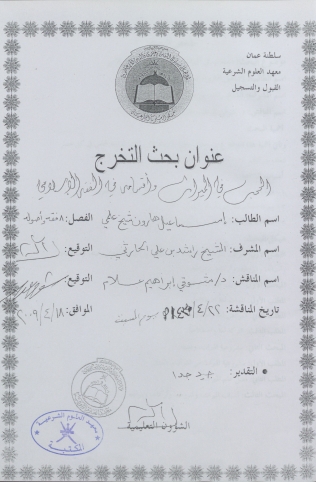 سلطنة عمان
معهد العلوم الشرعية
القبول والتسجيل
عنوان بحث التخرج
الحجب في الميراث وأقسامه في الفقه الإسلامي
اسم الطالب: إسماعيل هارون شيخ علي الفصل: ٨ فقه وأصوله
اسم المشرف: الشيخ راشد بن علي الحارثي التوقيع:
اسم المناقش: د/ شوقي إبراهيم علام التوقيع:
تاريخ المناقشة: ٢٢/٤/ يوم السبت الموافق: ١٨/٤/٢٠٠٩
• التقدير: جيد جدا
الشؤون التعليمية
معهد العلوم الشرعية
المكتبة